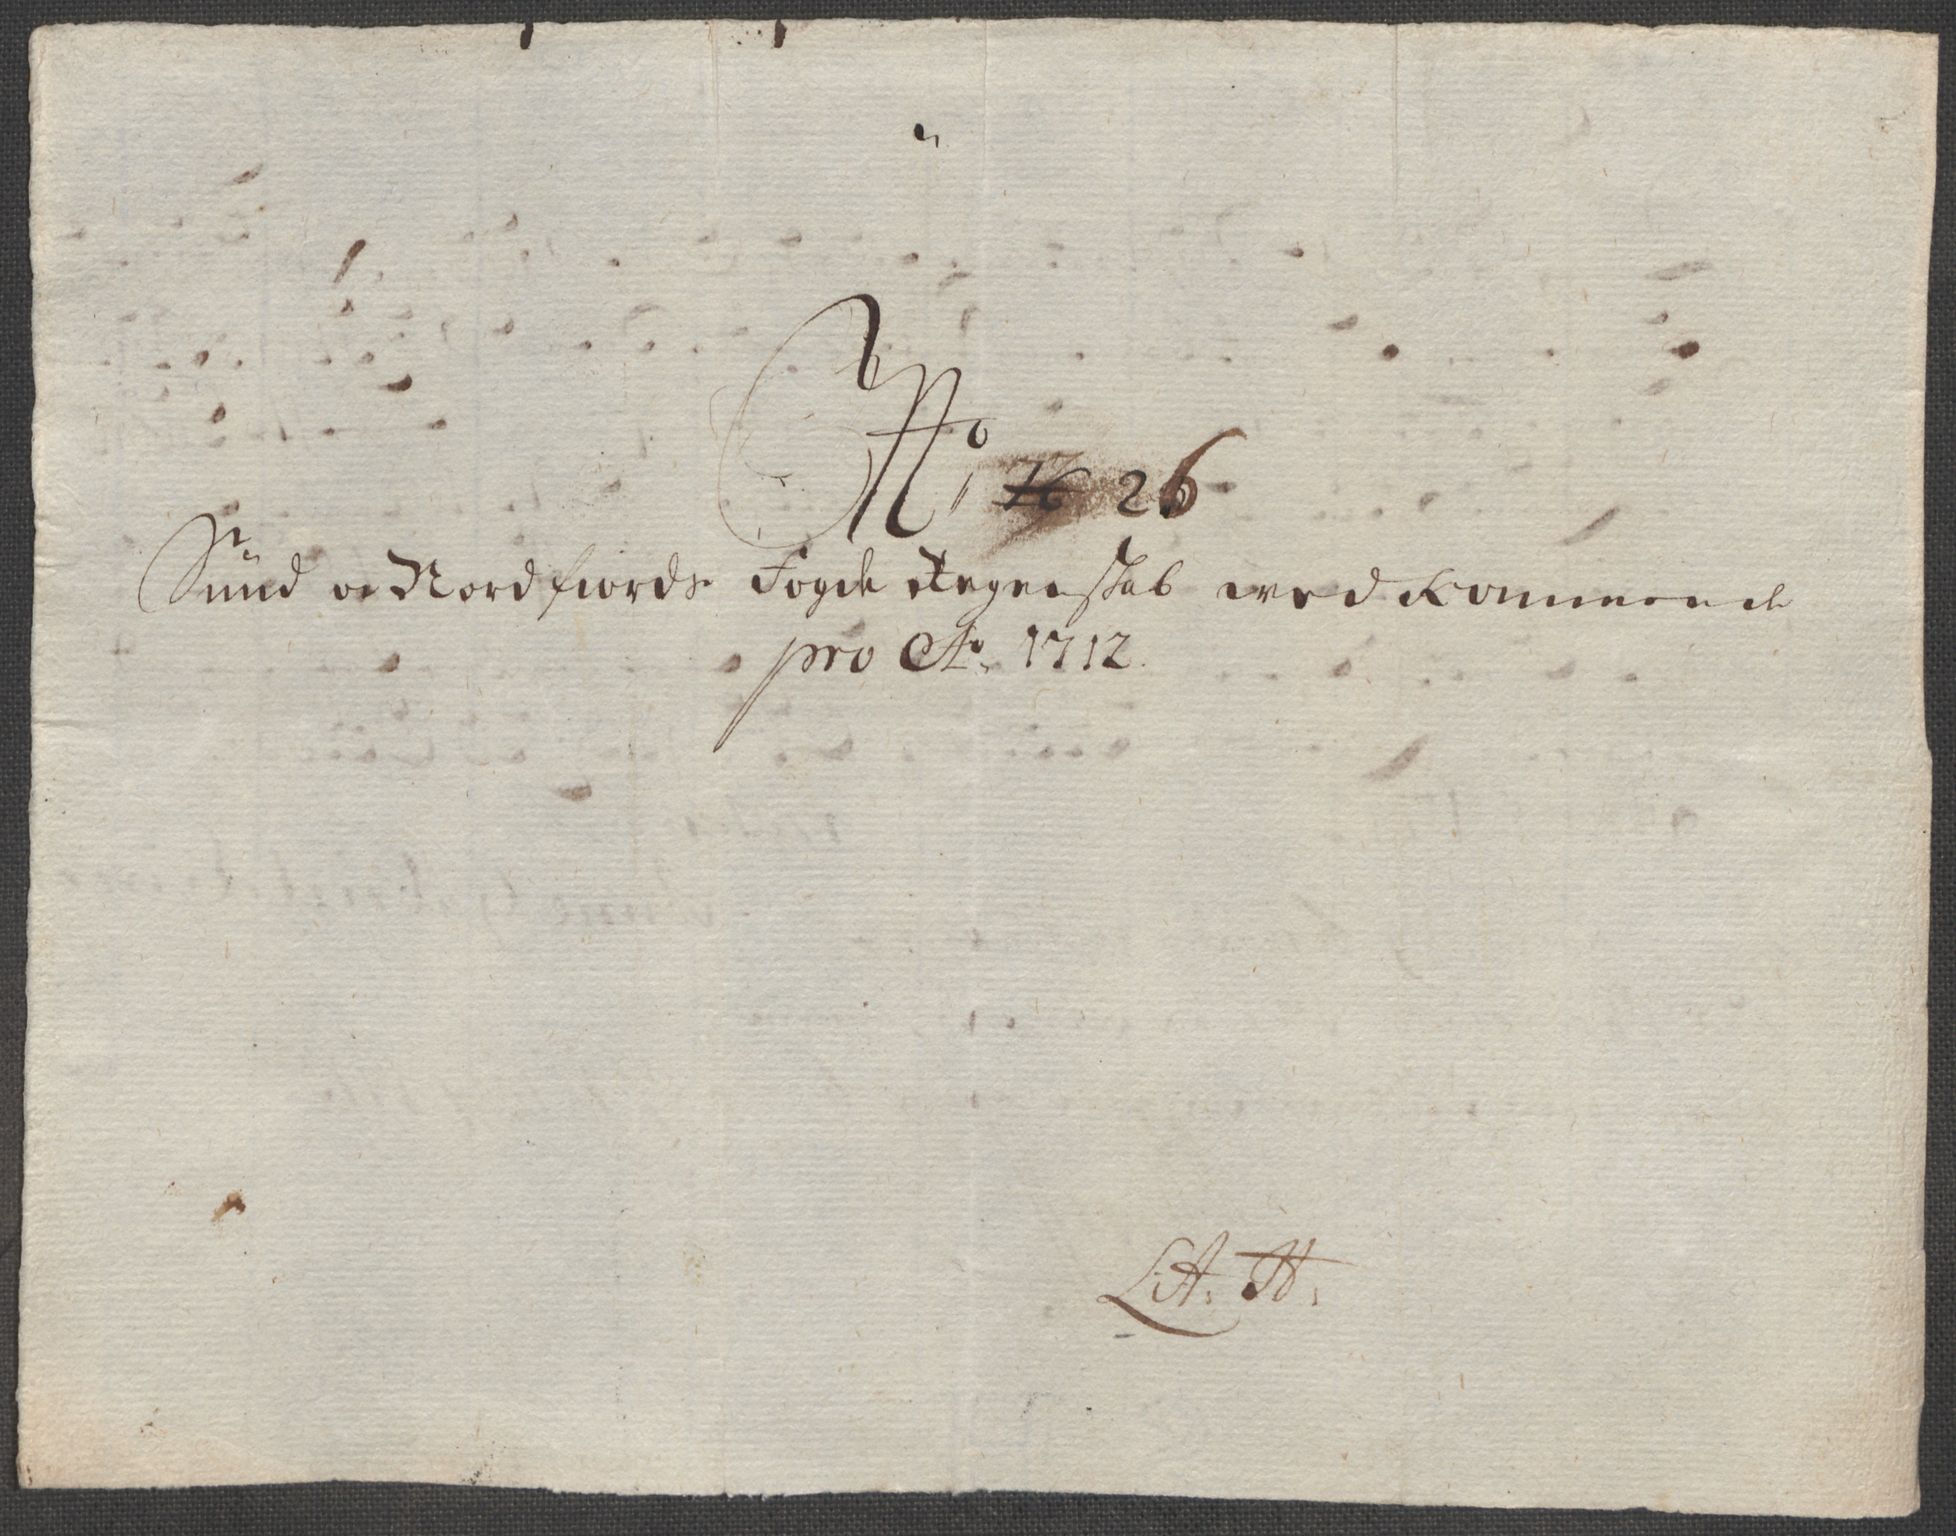 No 26
Sünd oc Nordfiords Fogde Regenskab wedkommende
pro Ao 1712.
Lit. H.